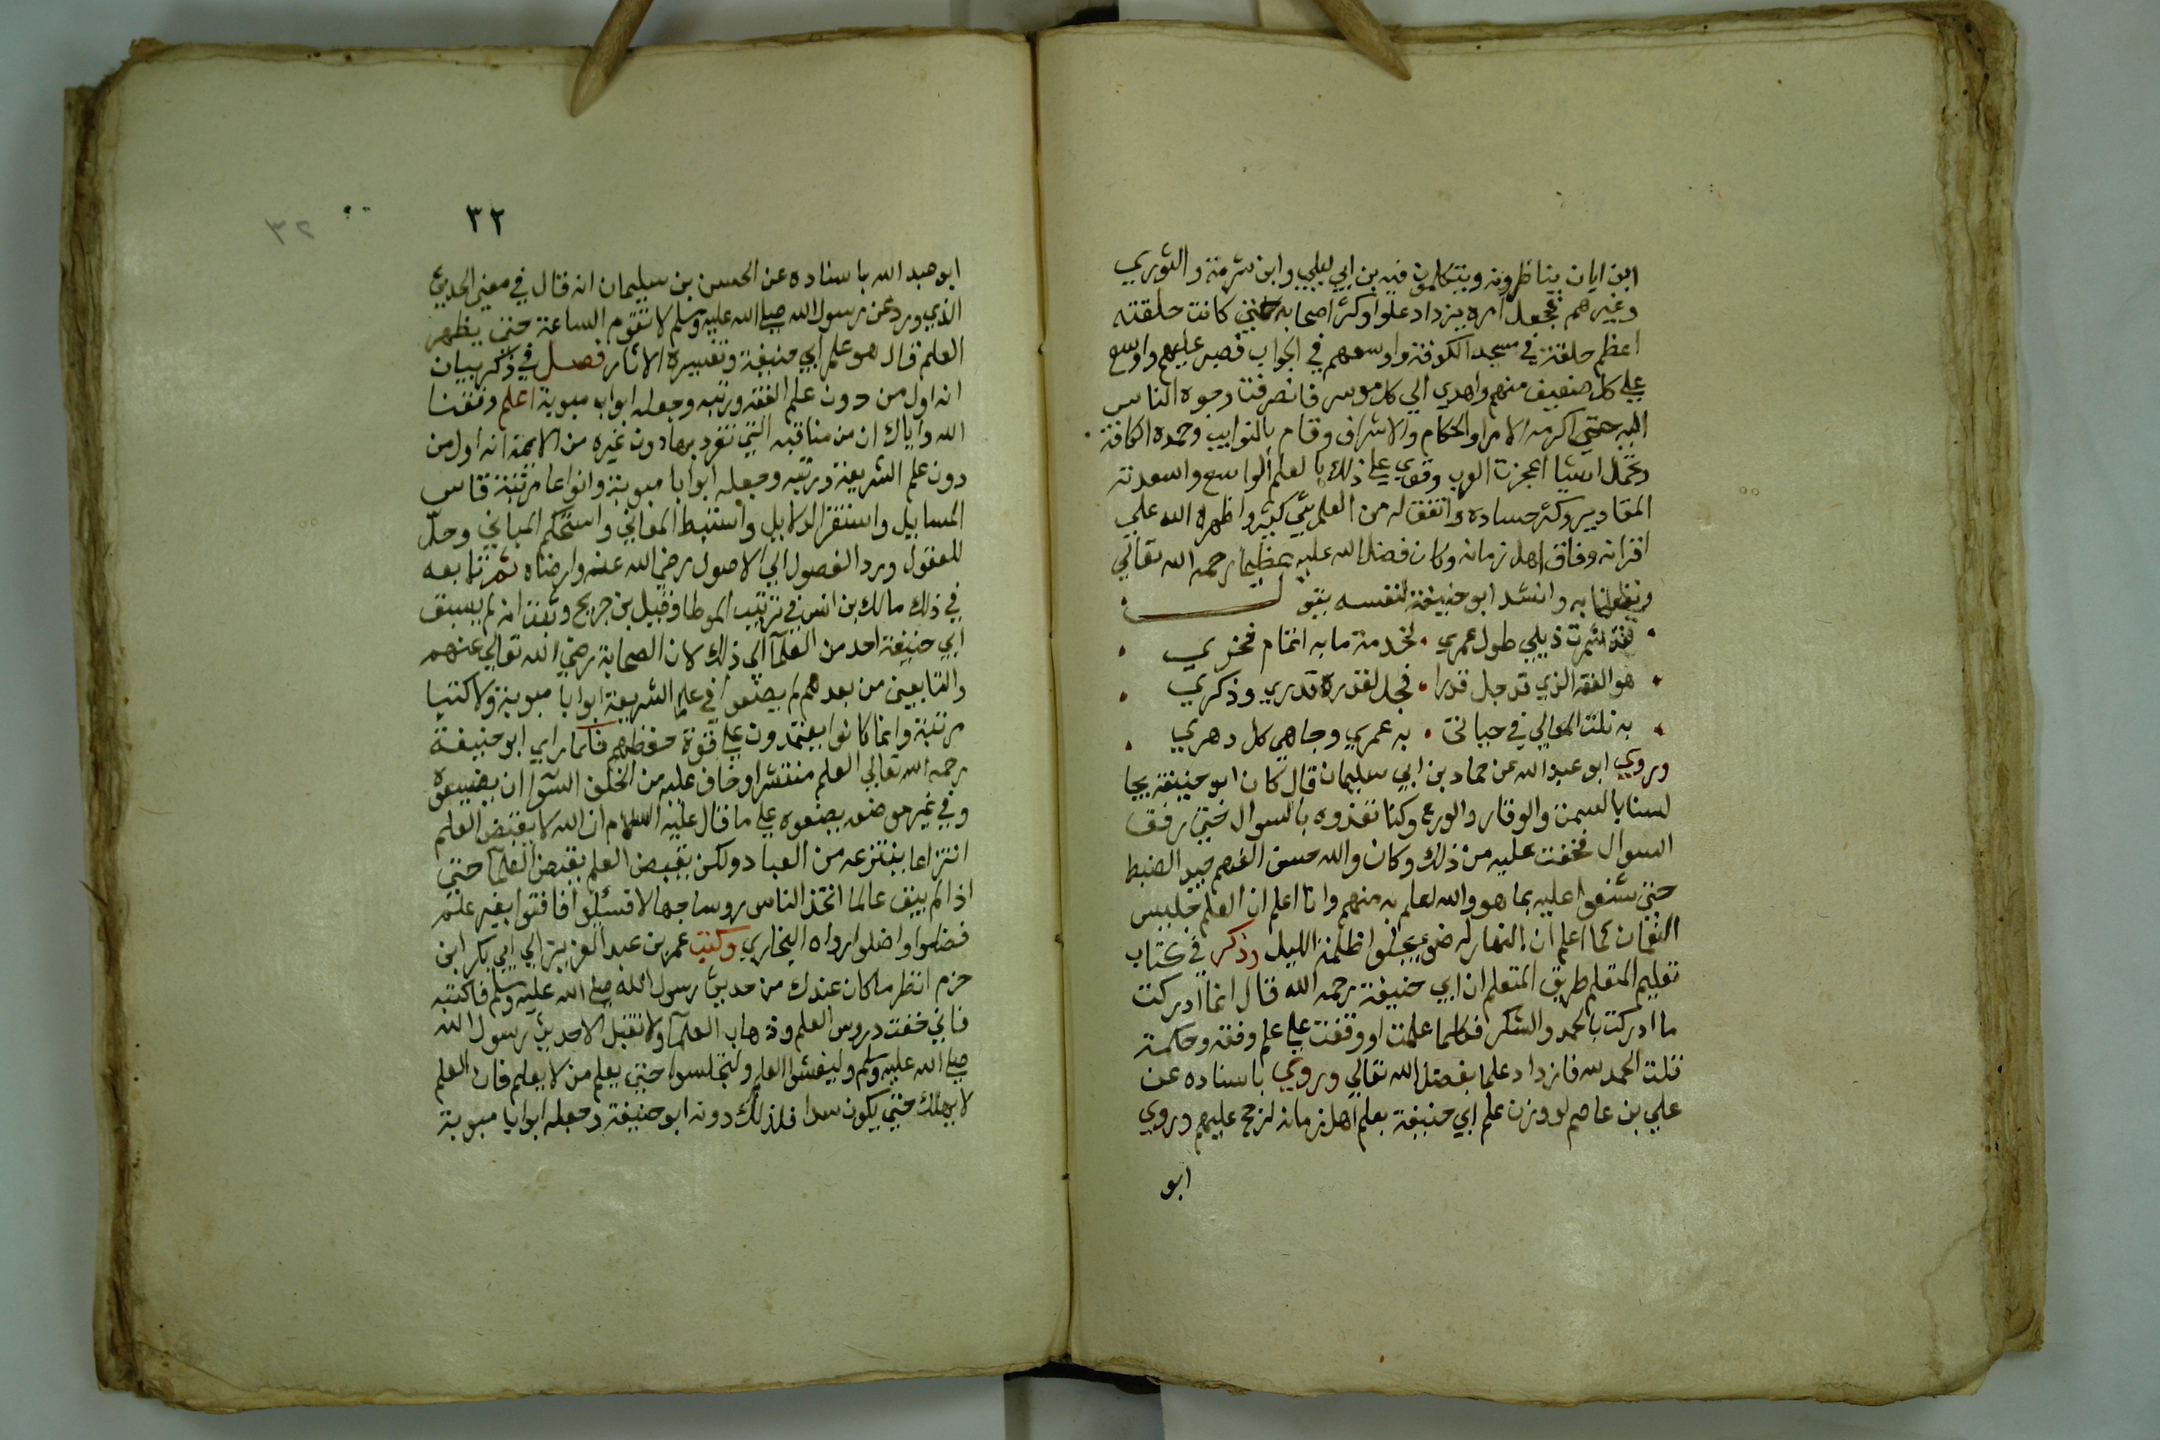 ابن ايان يناظرونه ويتكلمون فيه بن ابي ليلي وابن شبرمة والثوري
وغيرهم فجعل امره يزداد علوا وكثر اصحابه حتي كانت حلقته
اعظم حلقة في مسجد الكوفة واوسعهم في الجواب فصبر عليهم واوسع
علي كل ضعيف منهم واهدي الي كل موسر فانصرفت وجوه الناس
اليه حتي اكرمه الامرا والحكام والاشراف وقام بالنوايب وحمده الكافة
وعمل اشيا اعجزت العرب وقوي علي ذلك بالعلم الواسع واسعدته
المقادير وكثر حساده واتفق له من العلم شي كثير واظهره الله علي
اقرانه وفاق اهل زمانه وكان فضل الله عليه عظيما رحمه الله تعالي
ونفعنا به وانشد ابو حنيفة لنفسه يقول
لقد شمرت ذيلي طول عمري . لخدمة ما به اتمام فخري
هو الفقه الذي قد جل قدرا . فجل لقدره قدري وذكري
به نلت المعالي في حياتي . به عمري وجاهي كل دهري
وروي ابو عبد الله عن حماد بن ابي سليمان قال كان ابو حنيفة يجا
لسنا بالسمت والوقار والورع وكنا نغذوه بالسوال حتي رفق
السوال فخفت عليه من ذلك وكان والله حسن الفهم جيد الضبط
حتي شنعوا عليه بما هو والله اعلم به منهم وانا اعلم ان العلم جليس
النعمان كما اعلم ان النهار له ضوء يجلوا ظلمة الليل وذكر في كتاب
تعليم المتعلم طريق المتعلم ان ابي حنيفة رحمه الله قال انما ادركت
ما ادركت بالحمد والشكر فكلما علمت او وقفت علي علم وفقه وحكمة
قلت الحمد لله فازداد علما بفضل الله تعالي وروي باسناده عن
علي بن عاصم لو وزن علم ابي حنيفة بعلم اهل زمانه لرجح عليهم وروي
ابو
٣٢
٣٢
ابو عبد الله باسناده عن الحسن بن سليمان انه قال في معني الحديث
الذي ورد عن رسول الله صلي الله عليه وسلم لا تقوم الساعة حتي يظهر
العلم قال هو علم ابي حنيفة وتفسيره الاثار فصل في ذكر بيان
انه اول من دون علم الفقه ورتبه وجعله ابواب مبوبة اعلم وفقنا
الله واياك ان من مناقبه التي تفرد بها دون غيره من الايمة انه اول من
دون علم الشريعة ورتبه وجعله ابوابا مبوبة وانواعا مرتبة قاس
المسايل واستقر الدلايل واستنبط المعاني واستحكم المباني وحلل
للعقول ورد الفصول الي الاصول رضي الله عنه وارضاه ثم تابعه
في ذلك مالك بن انس في ترتيب الموطا وقيل بن جريج وثبت انه لم يسبق
ابي حنيفة احد من العلمآ الي ذلك لان الصحابة رضي الله تعالي عنهم
والتابعين من بعدهم لم يضعوا في علم الشريعة ابوابا مبوبة ولا كتبا
مرتبة وانما كانوا يعتمدون علي قوة حفظهم فلما راي ابو حنيفة
رحمه الله تعالي العلم منتشرا وخاف عليه من الخلف السوآ ان يضيعوه
وفي غير موضعه يضعوه علي ما قال عليه السلام ان الله لا يقبض العلم
انتزاعا ينتزعه من العباد ولكن يقبض العلم بقبض العلمآ حتي
اذا لم يبق عالما اتخذ الناس روسا جهالا فسئلوا فافتوا بغير علم
فضلوا واضلوا رواه البخاري وكتب عمر بن عبد العزيز الي ابي بكر ابن
حزم انظر ما كان عندك من حديث رسول الله صلي الله عليه وسلم فاكتبه
فاني خفت دروس العلم وذهاب العلمآ ولا تقبل الا حديث رسول الله
صلي الله عليه وسلم وليفشوا العلم ولتجلسوا حتي يعلم من لا يعلم فان العلم
لا يهلك حتي يكون سرا فلذلك دونه ابو حنيفة وجعله ابوابا مبوبة